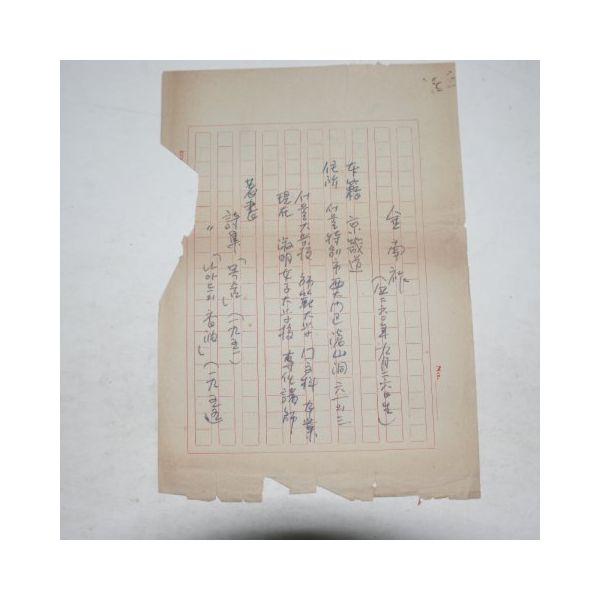 金南祚
(四二六〇年九月二六日生)
本籍 京畿道
住所 서울特別市 西大門区 滄山洞 六一의三
서울大学校 師範大学 国文科 卒業
現在 淑明女子大学校 専任講師
著書
詩集「목숨」(一九五三)
〃 「나아드의 香油」(一九五五)